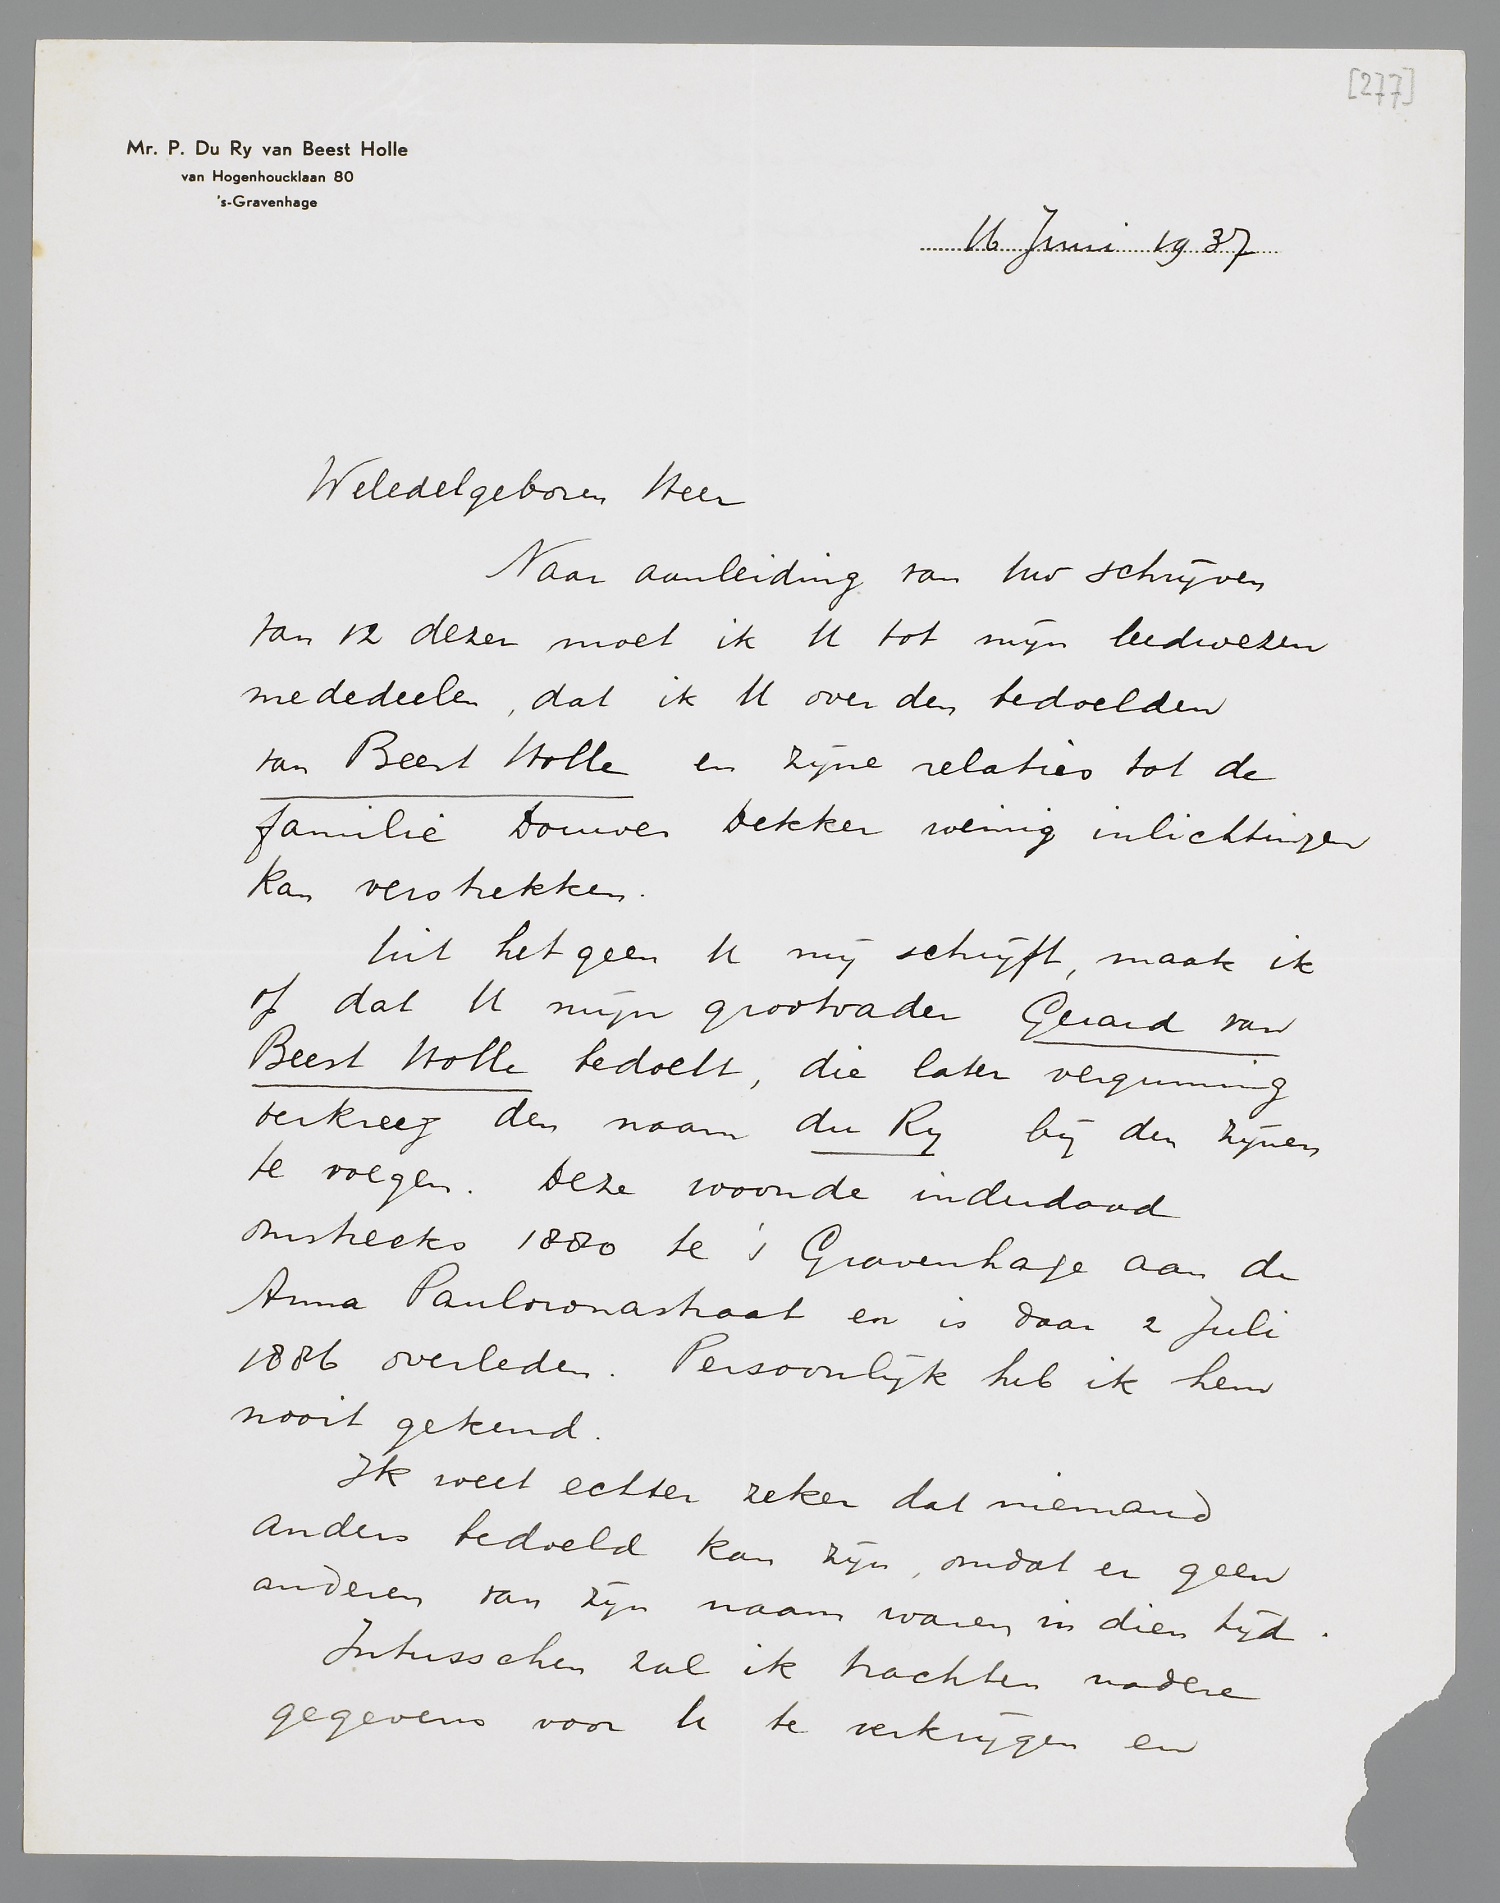 [277]
Mr. P. Du Ry van Beest Holle
van Hogenhoucklaan 80
's-Gravenhage
16 Juni 1937
Weledelgeboren Heer
Naar aanleiding van Uw schrijven
van 12 dezer moet ik U tot mijn leedwezen
mededeelen, dat ik U over den bedoelden
van Beest Holle en zijne relaties tot de
familie Douwes Dekker weinig inlichtingen
kan verstrekken.
Uit hetgeen U mij schrijft, maak ik
of dat U mijn grootvader Gerard van
Beest Holle bedoelt, die later vergunning
verkreeg den naam du Ry bij den zijnen
te voegen. Deze woonde inderdaad
omstreeks 1880 te 's Gravenhage aan de
Anna Paulownastraat en is daar 2 Juli
1886 overleden. Persoonlijk heb ik hem
nooit gekend.
Ik weet echter zeker dat niemand
anders bedoeld kan zijn, omdat er geen
anderen van zijn naam waren in dien tijd.
Intusschen zal ik trachten nadere
gegevens voor U te verkrijgen en